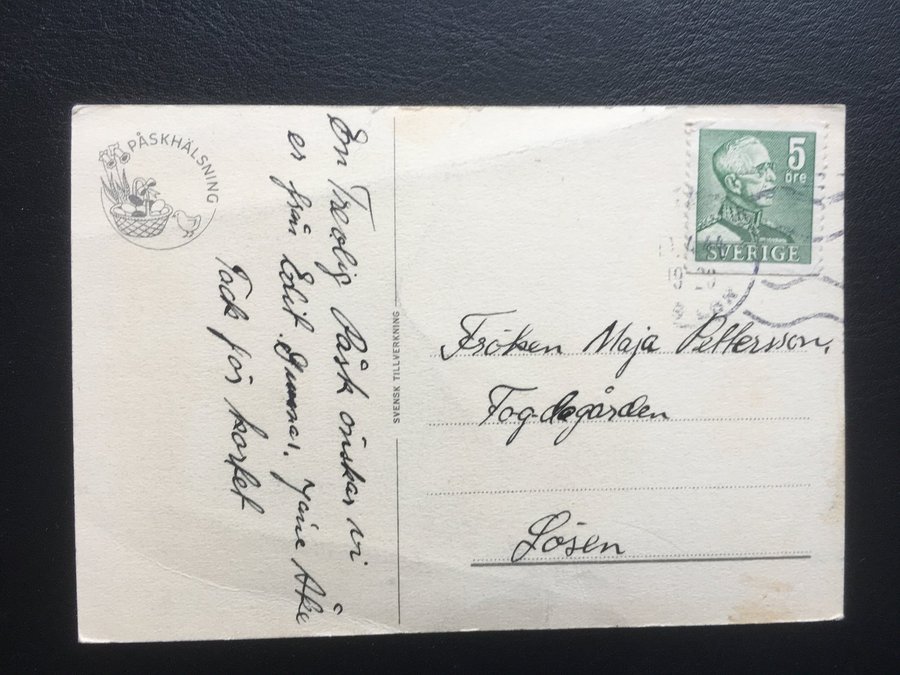 PÅSKHÄLSNING
En Treolig Påsk önskar vi
er från Edit Gunnar. Åke
Tack för kortet
SVENSK TILLVERKNING
5
öre
SVERIGE
Fröken Maja Pettersson.
Fogdagården
Lösen